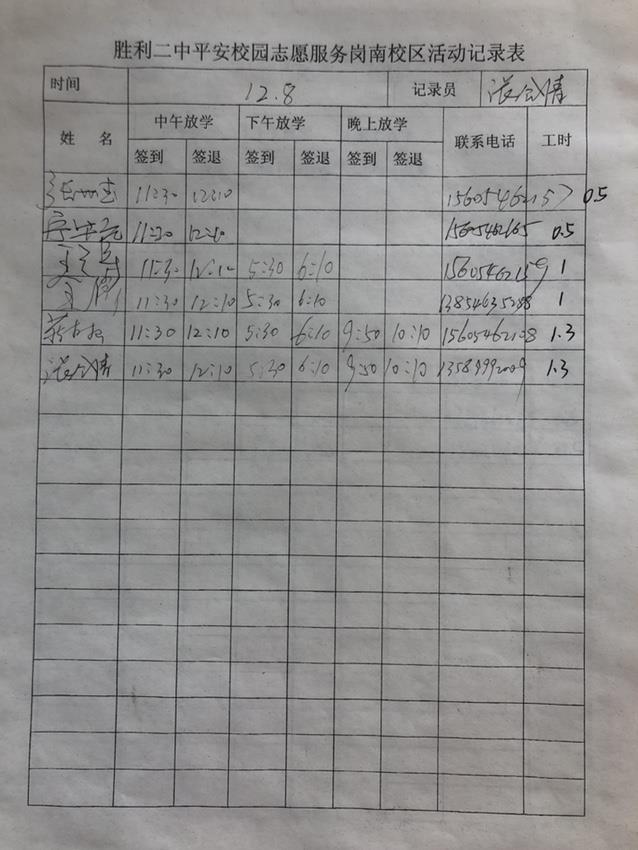 胜利二中平安校园志愿服务岗南校区活动记录表
时间 12.8 记录员
姓 名 中午放学 下午放学 晚上放学 联系电话 工时
签到 签退 签到 签退 签到 签退
11:30 12:10 15605462157 0.5
11:30 12:10 15605462165 0.5
11:30 12:10 5:30 6:10 15605462159 1
11:30 12:10 5:30 6:10 1
11:30 12:10 5:30 6:10 9:50 10:10 1.3
11:30 12:10 5:30 6:10 9:50 10:10 13589992009 1.3